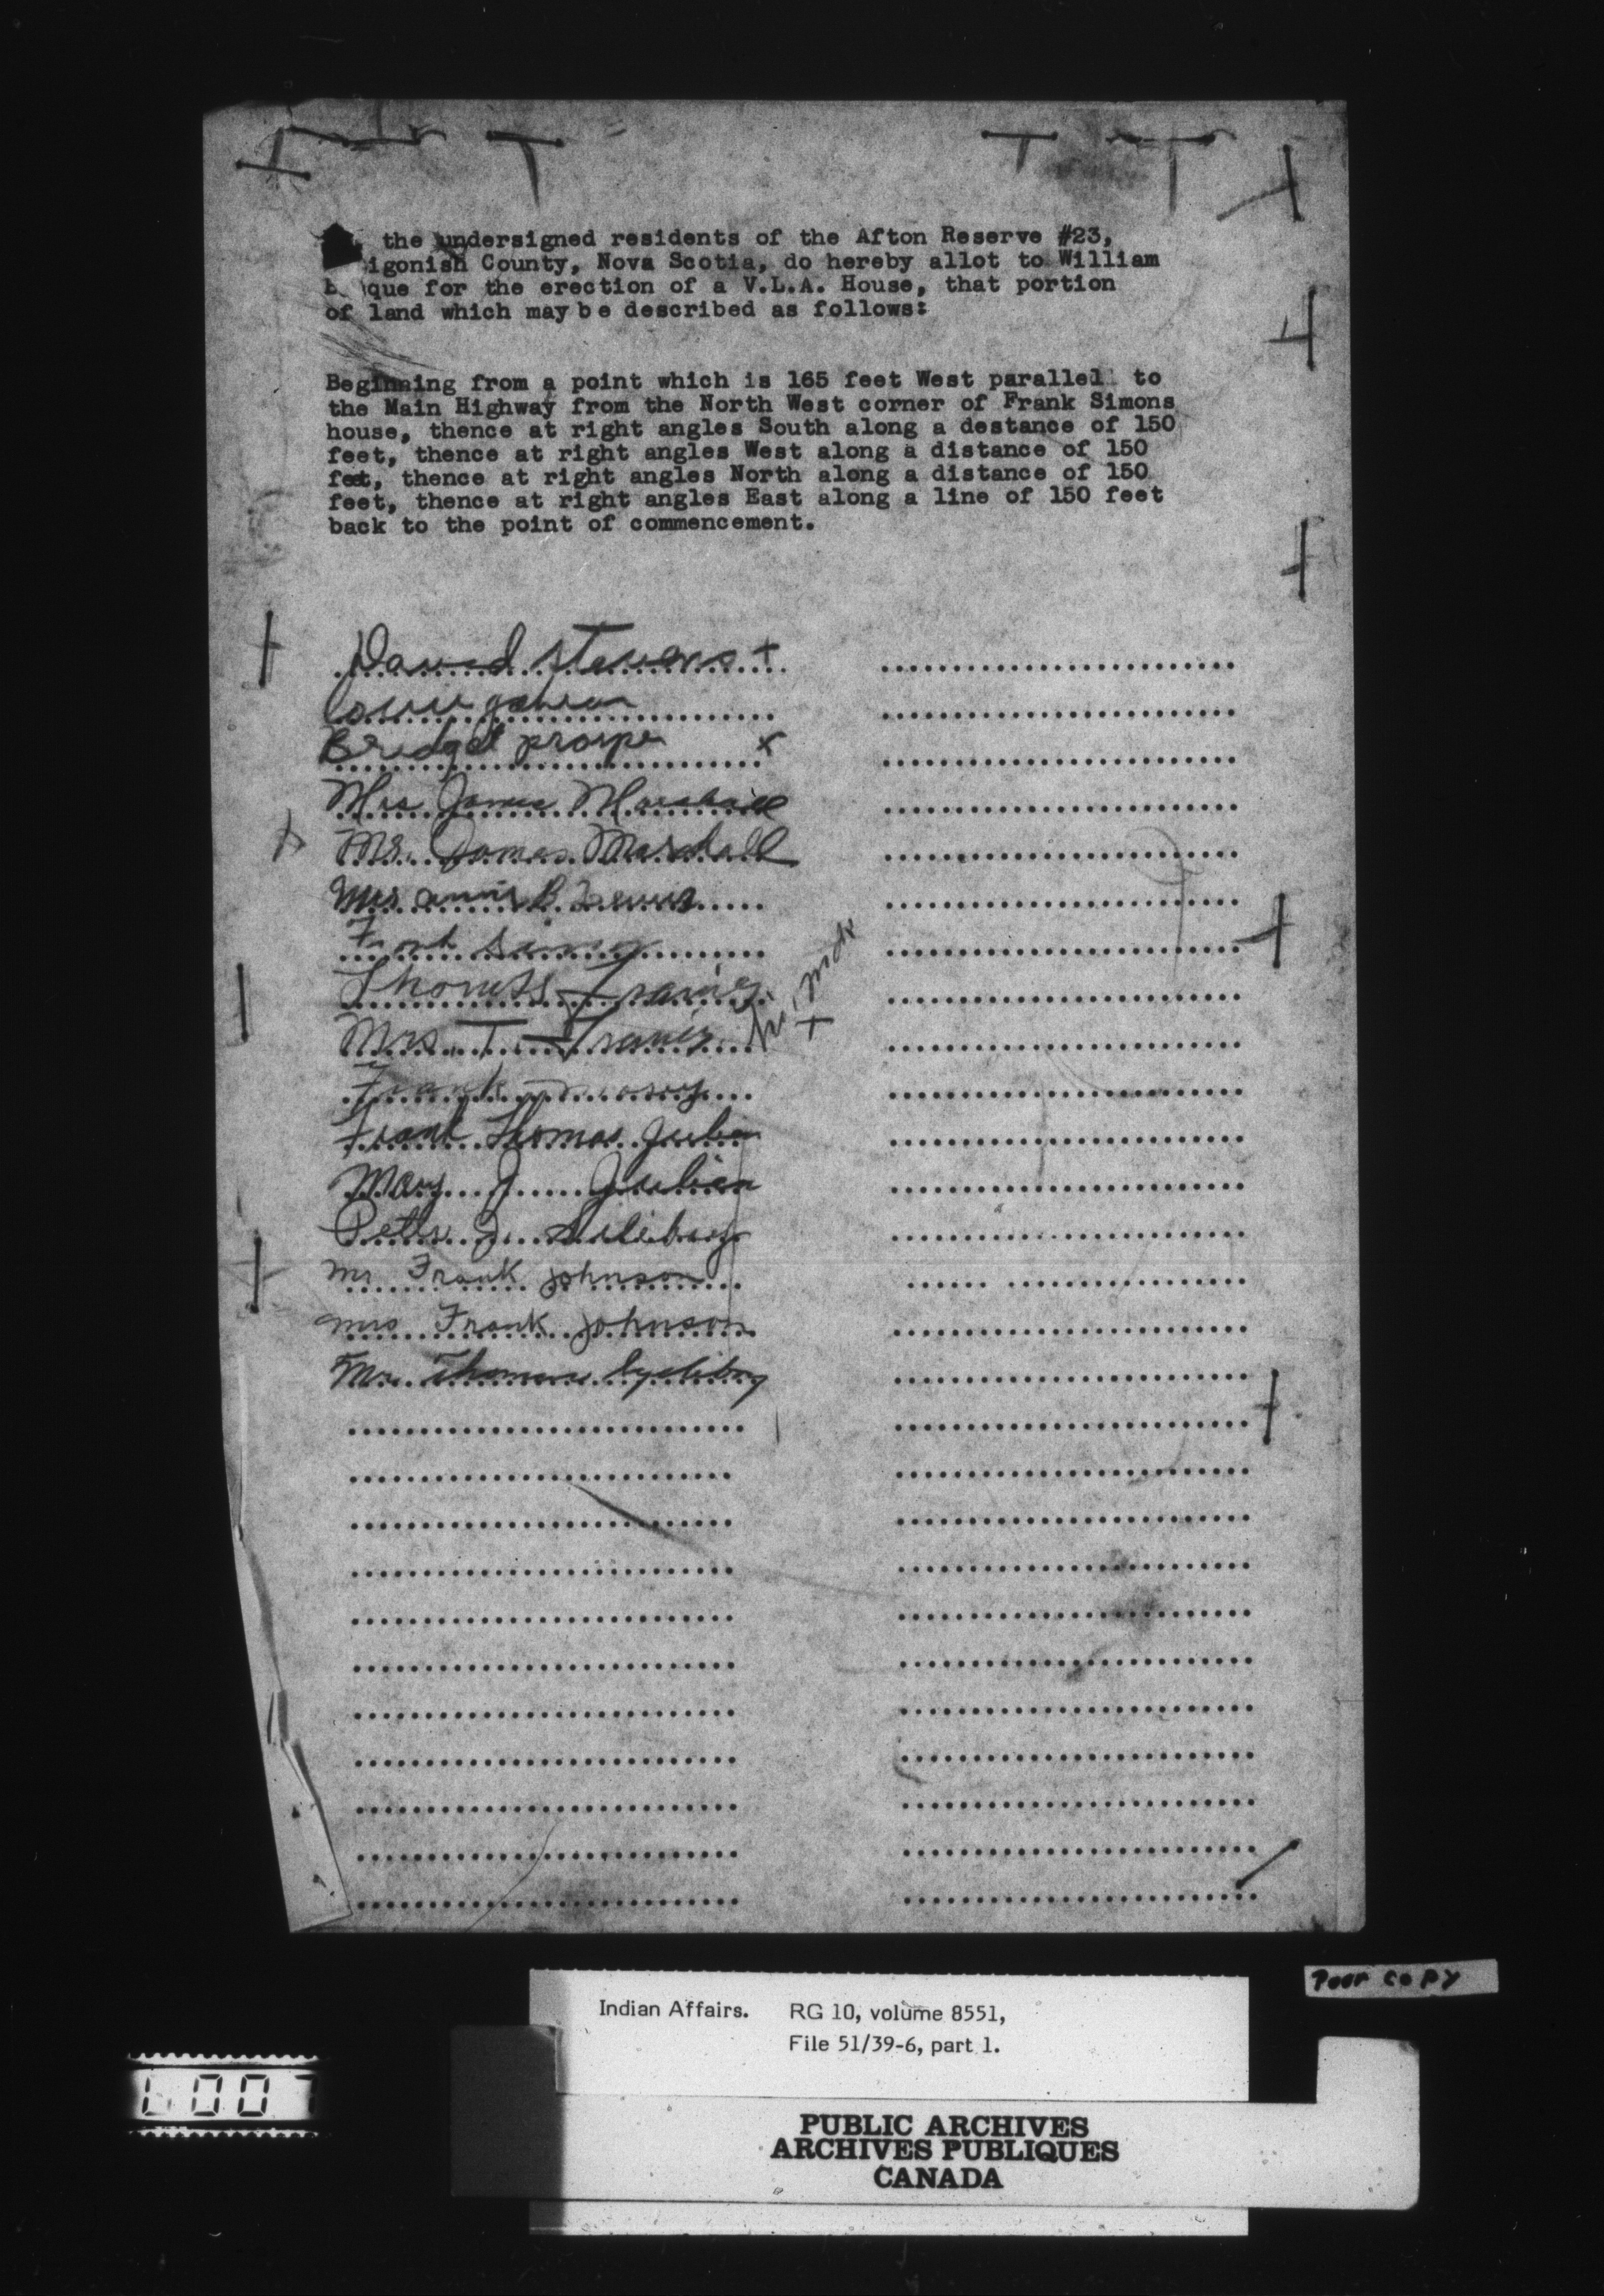 the undersigned residents of the Afton Reserve #23,
igonish County, Nova Scotia, do hereby allot to William
que for the erection of a V.L.A. House, that portion
of land which may be described as follows:
Beginning from a point which is 165 feet West parallel to
the Main Highway from the North West corner of Frank Simons
house, thence at right angles South along a destance of 150
feet, thence at right angles West along a distance of 150
feet, thence at right angles North along a distance of 150
feet, thence at right angles East along a line of 150 feet
back to the point of commencement.
David Stevens +
Bridget prosper x
Mrs James Marshall
Mr. James Marshall
Mrs annie B Lewis
Frank
Thomas Francis
his mark
+
Mrs. T. Francis
Frank
Frank Thomas Julian
Mary J. Julian
Peter J.
Mr Frank Johnson
mrs Frank Johnson
Mr. Thomas
Poor copy
Indian Affairs. RG 10, volume 8551,
File 51/39-6, part 1.
PUBLIC ARCHIVES
ARCHIVES PUBLIQUES
CANADA